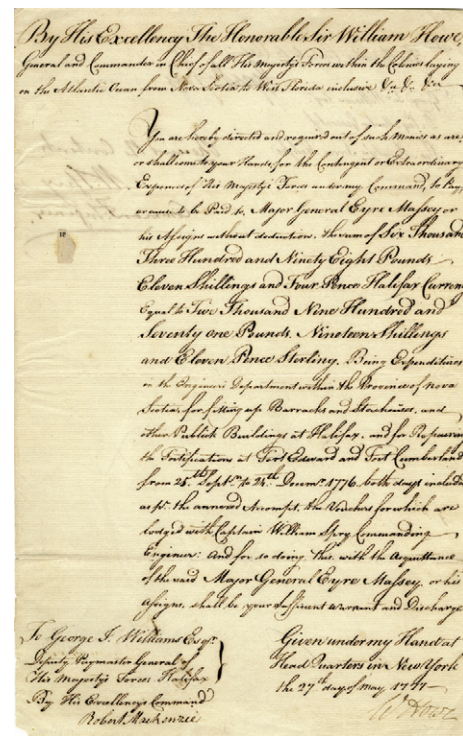 By His Excellency The Honorable Sir William Howe,
General and Commander in Chief of all His Majesty's Forces within the Colonies laying
on the Atlantic Ocean from Nova Scotia to West Florida inclusive &c. &c. &c.
You are hereby directed and required out of such Monies as are,
or shall come to your Hands for the Contingent or Extraordinary
Expences of His Majesty's Forces under my Command, to Pay,
or cause to be Paid to, Major General Eyre Massey or
his Assigns without deduction, the sum of Six Thousand
Three Hundred and Ninety Eight Pounds
Eleven Shillings and Four Pence Halifax Curren
Equal to Two Thousand Nine Hundred and
Seventy one Pounds, Nineteen Shillings
and Eleven Pence Sterling, Being Expenditures
in the Engineers Department within the Province of Nova
Scotia, for fitting up Barracks and Storehouses, and
other Publick Buildings at Halifax, and for Repairing
the Fortifications at Fort Edward and Fort Cumberland
from 25th Septr. to 24th Decemr. 1776 both days included
as pr. the annexed Accompt, the Vouchers for which are
lodged with Captain William Spry Commanding
Engineer: And for so doing this, with the Acquittance
of the said Major General Eyre Massey, or his
Assigns, shall be your sufficient Warrant and Discharge
To George I. Williams Esqr.
Deputy Paymaster General of
His Majesty's Forces Halifax
By His Excellency's Command
Robert Mackenzie
Given under my Hand at
Head Quarters in New York
the 27th day of May 1777
W Howe